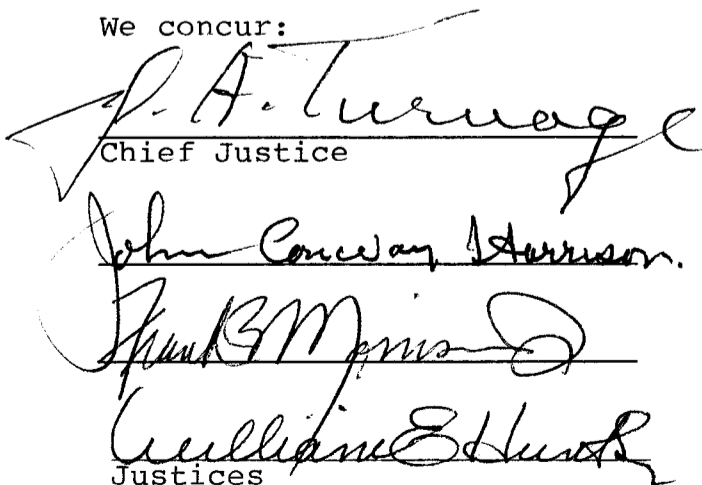 We concur:
J. A. Turnage
Chief Justice
John Conway Harrison.
Frank B Morrison Jr
William E Hunt Sr
Justices